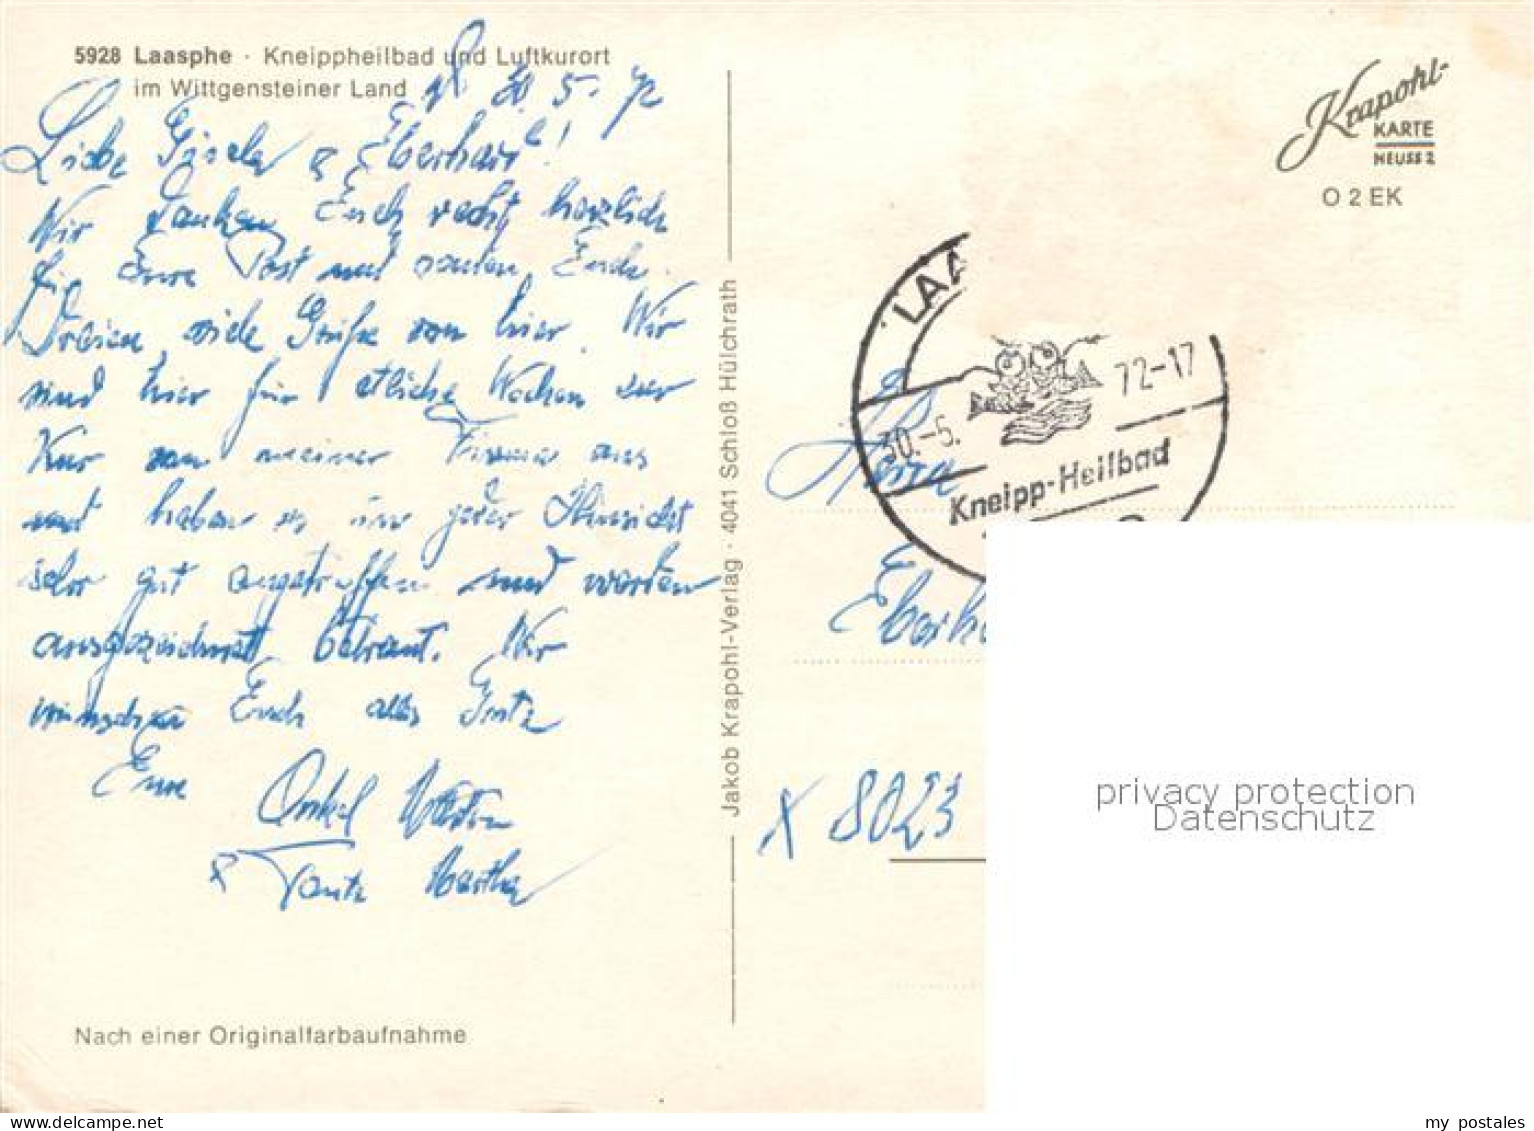 5928 Laasphe · Kneippheilbad und Luftkurort
im Wittgensteiner Land
30. 5. 72
Liebe Gisela & Eberhard!
Wir danken Euch recht herzlich
für Eure Post und senden Euch
Dreien viele Grüße von hier. Wir
sind hier für etliche Wochen zur
Kur von meiner Firma aus
und haben es in jeder Hinsicht
sehr gut angetroffen und werden
ausgezeichnet betreut. Wir
wünschen Euch alles Gute
Eure
Onkel
& Tante Martha
Nach einer Originalfarbaufnahme
Jakob Krapohl-Verlag · 4041 Schloß Hülchrath
Krapohl-
KARTE
NEUSS 2
O 2 EK
LAA
30.-5.
72-17
Kneipp-Heilbad
Eberha
X 8023
privacy protection
Datenschutz
my postales